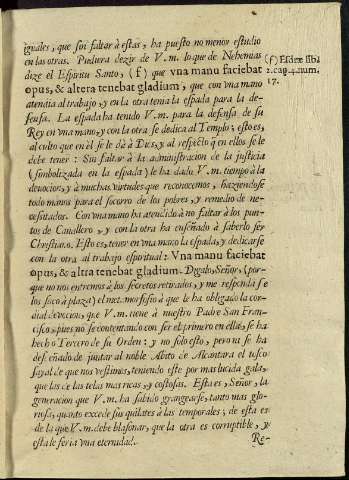 iguales, que sin faltar à estas, ha puesto no menor estudio
en las otras. Pudiera dezir de V.m. lo que de Nehemias
dize el Espiritu Santo, (f) que vna manu faciebat
opus, & altera tenebat gladium, que con vna mano
atendia al trabajo, y en la otra tenia la espada para la de-
fensa. La espada ha tenido V.m. para la defensa de su
Rey en vna mano, y con la otra se dedica al Templo; esto es,
al culto que en él se dà à Dios, y al respecto q̃ en ellos se le
debe tener: Sin faltar à la administracion de la justicia
(simbolizada en la espada) le ha dado V.m. tiempo à la
devocion, y à muchas virtudes que reconocemos, haziendose
todo manos para el socorro de los pobres, y remedio de ne-
cesitados. Con vna mano ha atendido à no faltar à los pun-
tos de Cavallero, y con la otra ha enseñado à saberlo ser
Christiano. Esto es, tener en vna mano la espada, y dedicarse
con la otra al trabajo espiritual: Vna manu faciebat
opus, & altra tenebat gladium. Digalo, Señor, (por-
que no nos entremos à los secretos retirados, y me responda se
los saco à plaza) el metamorfosio à que le ha obligado la cor-
dial devocion que V.m. tiene à nuestro Padre San Fran-
cisco, pues no se contentando con ser el primero en ella, se ha
hecho Tercero de su Orden; y no solo esto, pero no se ha
desdeñado de juntar al noble Abito de Alcantara el tosco
sayal de que nos vestimos, teniendo este por mas lucida gala,
que las de las telas mas ricas, y costosas. Esta es, Señor, la
generacion que V.m. ha sabido grangearse, tanto mas glo-
riosa, quanto excede sus quilates à las temporales; de esta es
de la que V.m. debe blasonar, que la otra es corruptible, y
esta le seria vna eternidad.
Re-
(f) Esdræ lib.
2. cap. 4. num.
17.